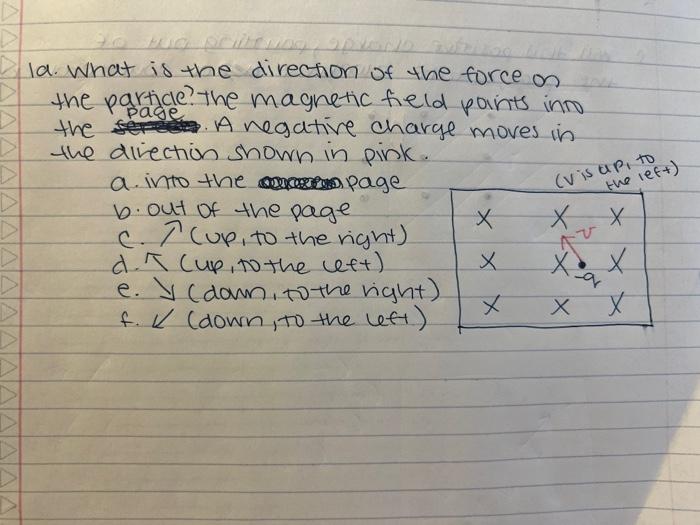 1a. What is the direction of the force on
the particle? The magnetic field points into
the page. A negative charge moves in
the direction shown in pink.
a. into the page
b. out of the page
c. ↗ (up, to the right)
d. ↖ (up, to the left)
e. ↘ (down, to the right)
f. ↙ (down, to the left)
(v is up, to
the left)
X X X
v
X X X
-q
X X X